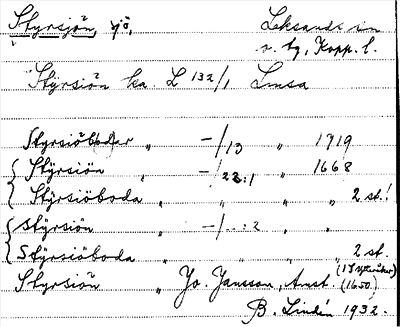 Styrsjön, sjö, Leksands sn
o. tg, Kopp. l.
"Styrsiön ha. L 132/1 Lmsa
Styrsiöboder " -/13 " 1719
Styrsiön " -/22:1 " 1668
Styrsiöboda " " " 2 st!
Styrsiön " -/--:2 " "
Styrsiöboda " " " 2 st.
Styrsiön " Jo. Jansson, Amst. (1650)
B. Lindén 1932.